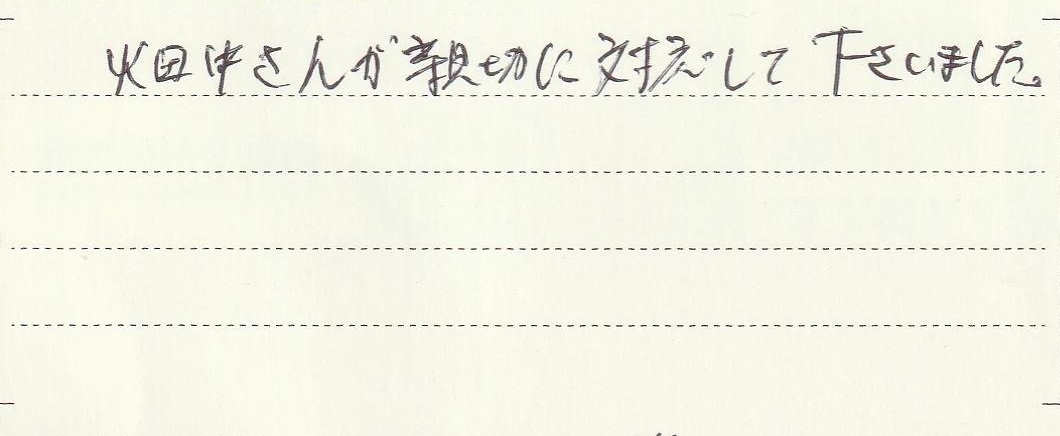 畑中さんが親切に対応して下さいました。